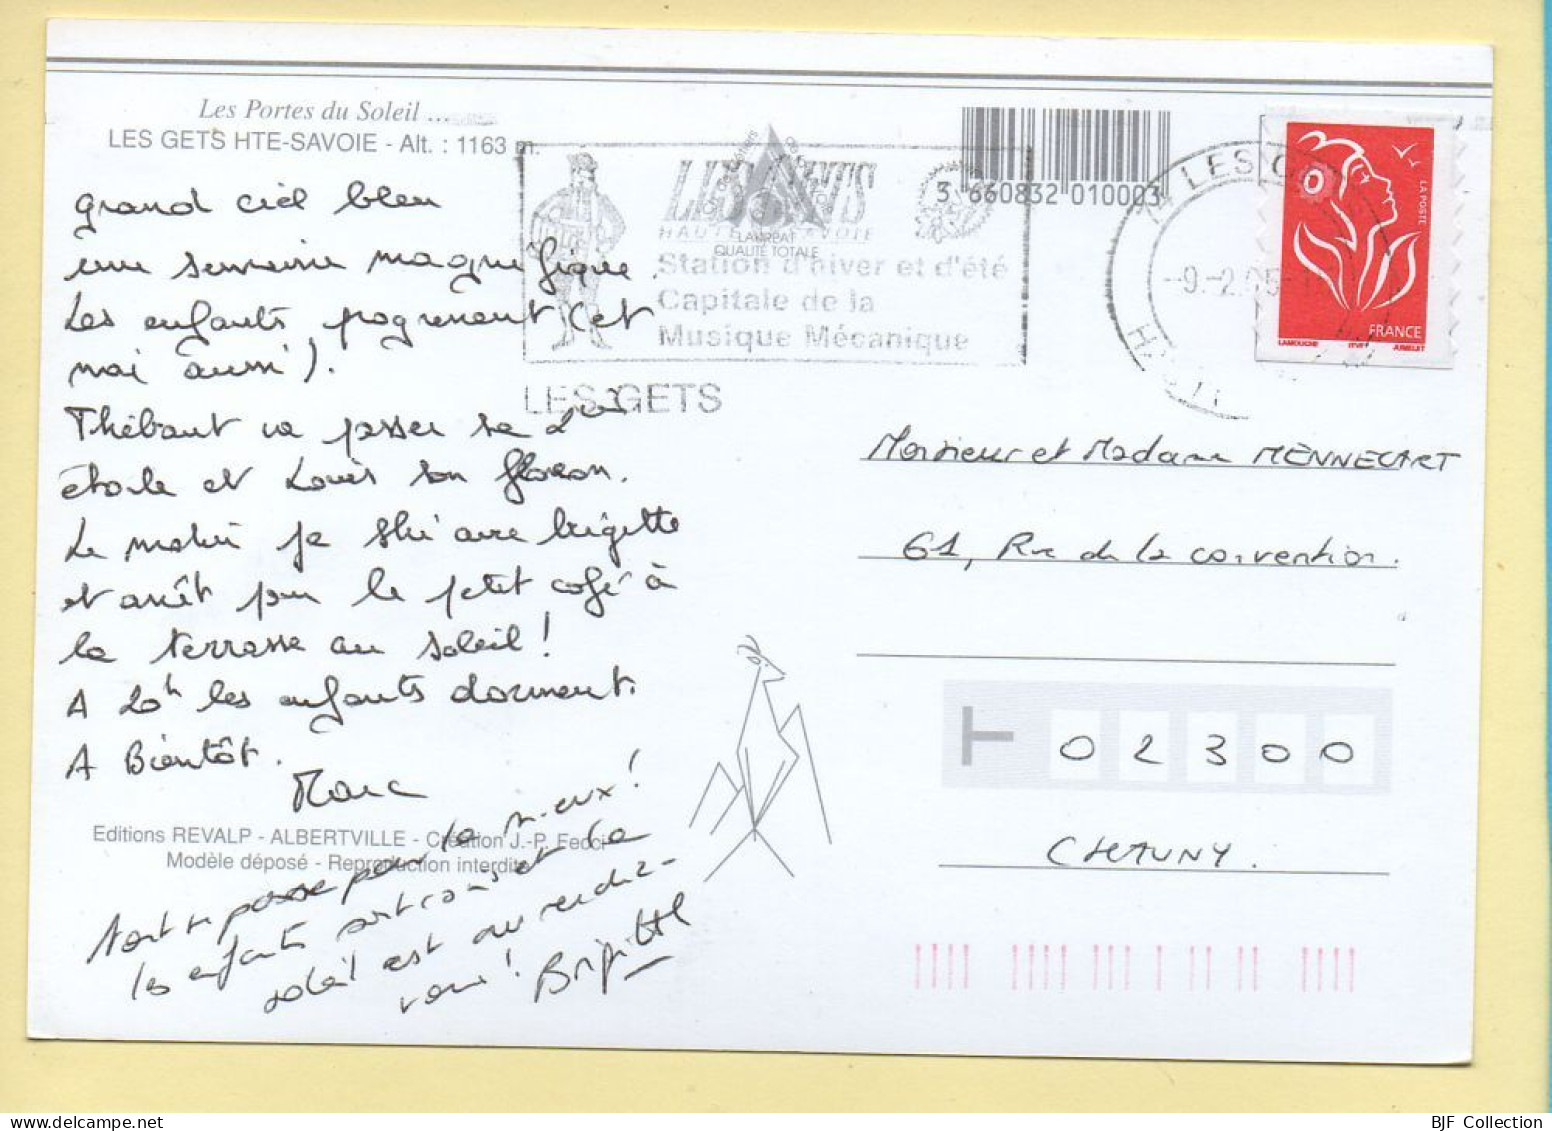 Les Portes du Soleil ...
LES GETS HTE-SAVOIE - Alt. : 1163 m.
grand ciel bleu
une semaine magnifique.
Les enfants progressent (et
moi aussi).
Thébaut va passer sa 2ème
étoile et Louis son flocon.
Le matin je ski avec brigitte
et arrêt pour le petit café à
la terrasse au soleil !
A 20h les enfants dorment.
A Bientôt.
Marc
Editions REVALP - ALBERTVILLE - Création J.-P. Fecci
Modèle déposé - Reproduction interdite
tout se passe pour le mieux !
les enfants sont et le
soleil est au rendez-
vous ! Brigitte
LES GETS
HAUTE-SAVOIE
LAUREAT
QUALITÉ TOTALE
Station d'hiver et d'été
Capitale de la
Musique Mécanique
LES GETS
3 660832 010003
74 LES GETS
-9.-2.05
LA POSTE
FRANCE
LAMOUCHE ITVF JUMELET
Monsieur et Madame MENNECART
61, Rue de la convention.
02300
CHAUNY.
BJF Collection